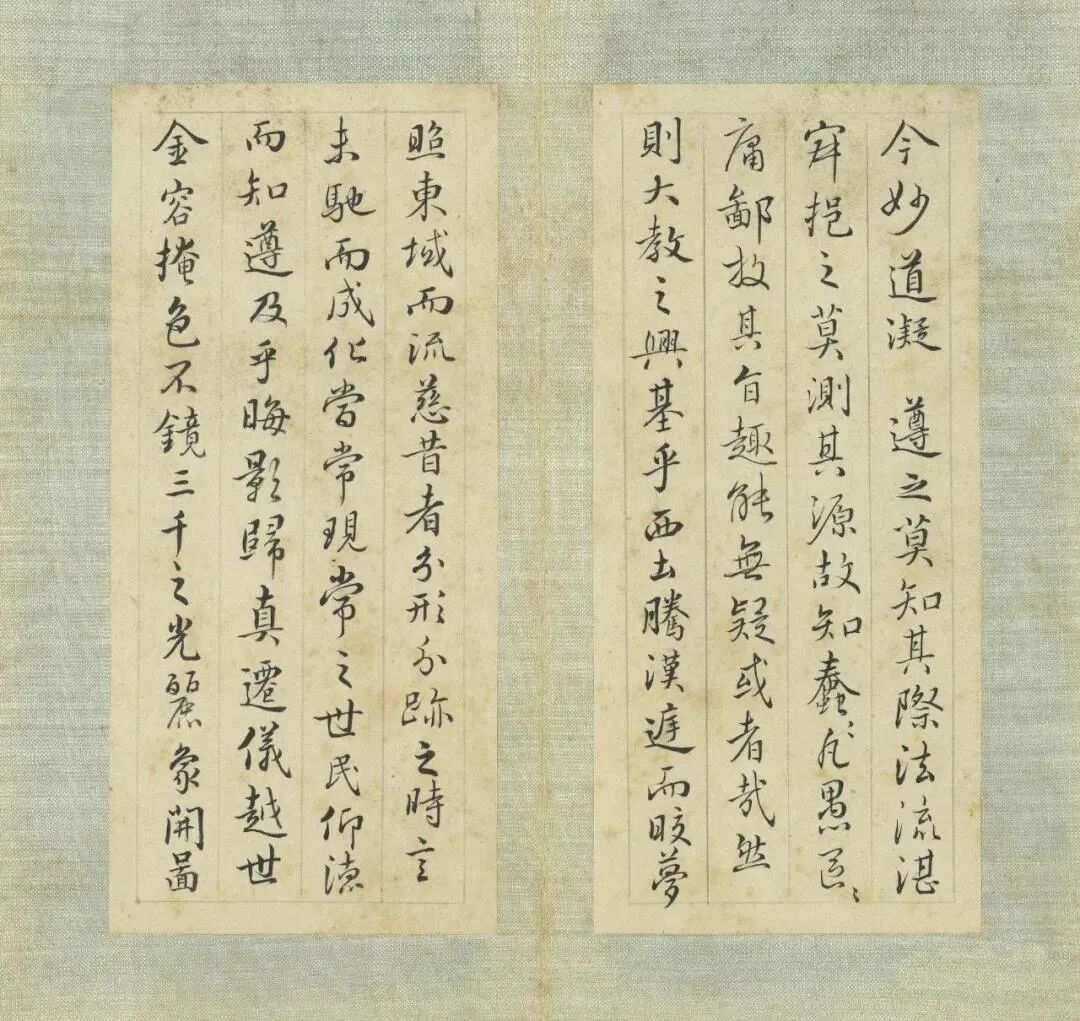 今妙道凝 遵之莫知其際法流湛
寂挹之莫測其源故知蠢〻凡愚區〻
庸鄙投其旨趣能無疑或者哉然
則大教之興基乎西土騰漢庭而皎夢
照東域而流慈昔者分形分跡之時言
未馳而成化當常現常之世民仰德
而知遵及乎晦影歸真遷儀越世
金容掩色不鏡三千之光麗象開圖